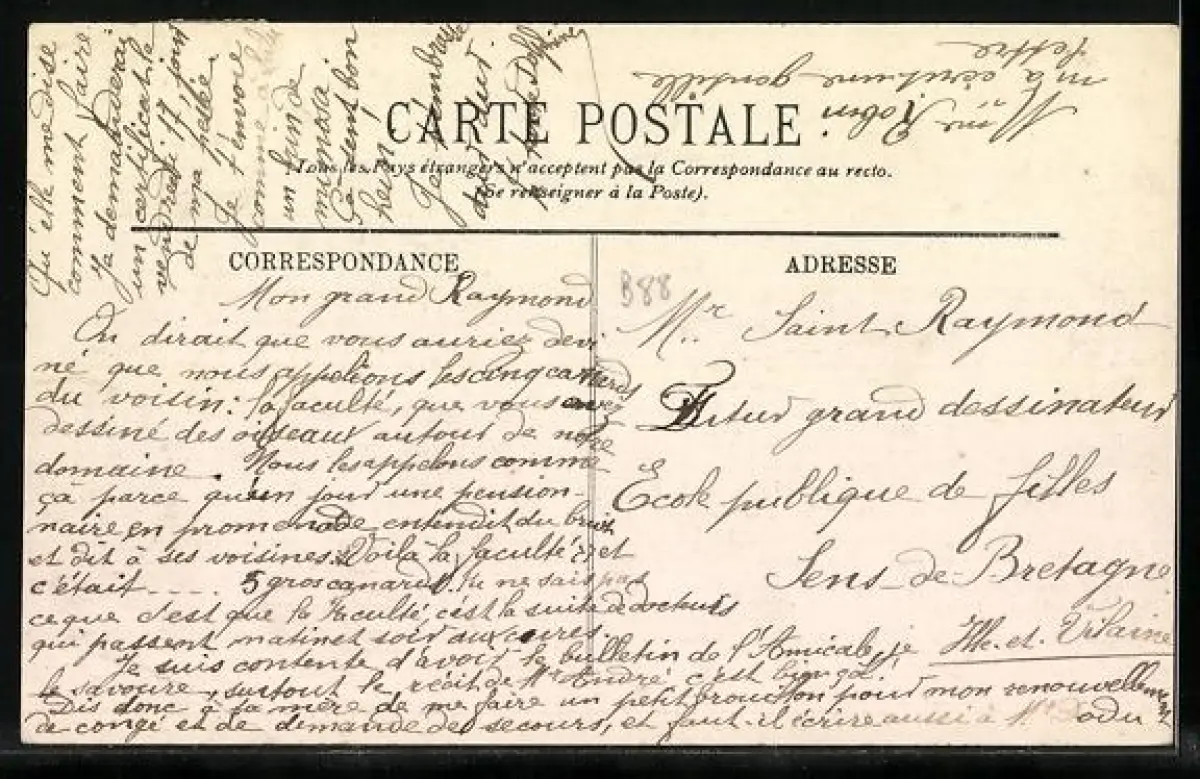 CARTE POSTALE
Tous les Pays étrangers n'acceptent pas la Correspondance au recto.
(Se renseigner à la Poste).
CORRESPONDANCE
ADRESSE
B88
Mr Saint Raymond
Futur grand dessinateur
Ecole publique de filles
Sens-de-Bretagne
Ille-et-Vilaine
Mon grand Raymond
On dirait que vous auriez devi
né que nous appelions les cinq canards
du voisin: la faculté, que vous avez
dessiné des oiseaux autour de notre
domaine. Nous les appelons comme
çà parce qu'un jour une pension-
naire en promenade entendit du bruit
et dit à ses voisines: Voilà la faculté et
c'était .... 5 gros canards. Tu ne sais pas
ce que c'est que la Faculté, c'est la suite de docteurs
qui passent matin et soir aux cures.
Je suis contente d'avoir le bulletin de l'Amicale, je
le savoure, surtout le récit de Mr André c'est
Dis donc à ta mère de me faire un petit brouillon pour mon renouvellement
de congé et de demande de secours, et faut-il écrire aussi à Mr
Qu'elle me dise
comment faire.
Je demanderai
un certificat le
vendredi 17 jour
de ma pesée.
Je t'envoie
comme à
un brin de
mimosa
Ça sent bon
hein!
Je t'embrasse
Mme Robin
m'a écrit une gentille
lettre